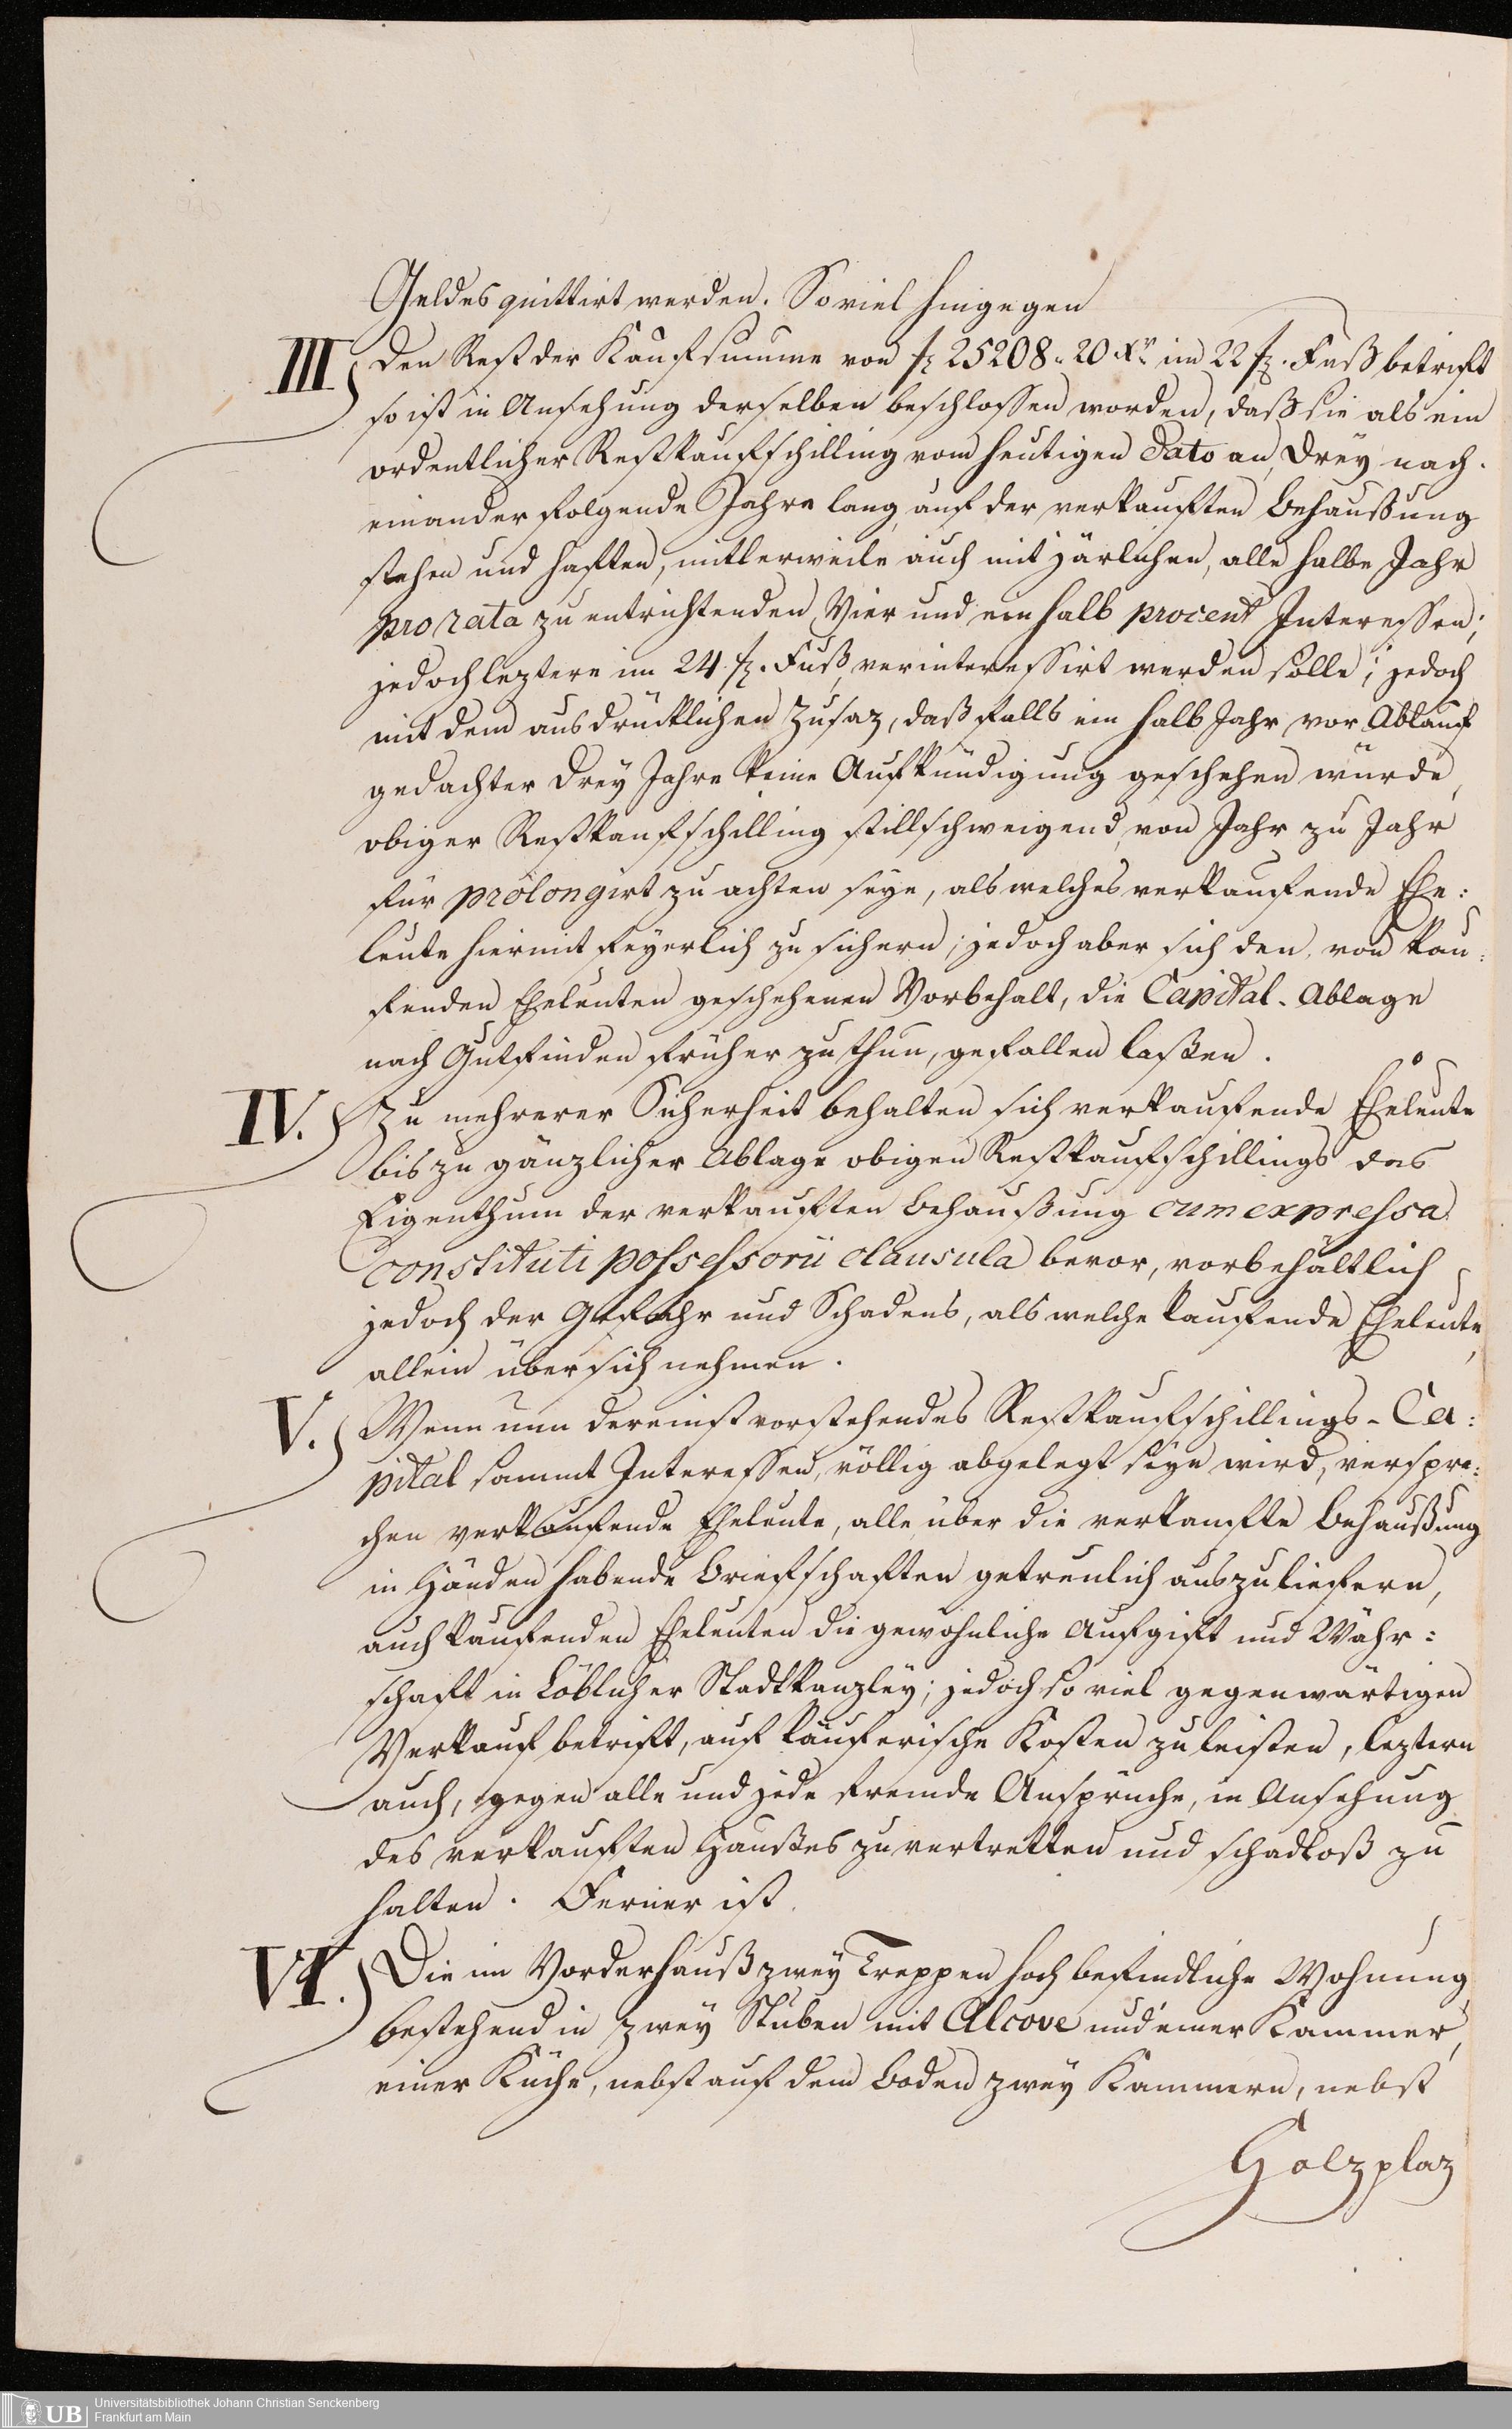 Geldes quittirt werden. So viel hingegen
III.) Den Rest der Kaufsumme von fl 25208 „ 20 Xr im 22 fl. Fuß betrift
so ist in Ansehung derselben beschlossen worden, daß sie als ein
ordentlicher Restkaufschilling vom heutigen Dato an, Drey nach-
einander folgende Jahre lang auf der verkauften Behaußung
stehen und haften, mitlerweile auch mit järlichen, alle halbe Jahr
pro rata zu entrichtenden Vier und ein halb procent Interessen;
jedoch leztere im 24 fl. Fuß verinteressirt werden solle; jedoch
mit dem ausdrücklichen Zusaz, daß falls ein halb Jahr vor Ablauf
gedachter Drey Jahre keine Aufkündigung geschehen würde,
obiger Restkaufschilling stillschweigend von Jahr zu Jahr
für prolongirt zu achten seye, als welches verkaufende Ehe:
leute hiermit feyerlich zusichern; jedoch aber sich den, von kau:
fenden Eheleuten geschehenen Vorbehalt, die Capital-Ablage
nach Gutfinden früher zu thun, gefallen laßen.
IV.) Zu mehrerer Sicherheit behalten sich verkaufende Eheleute
bis zu gänzlicher Ablage obigen Restkaufschillings das
Eigenthum der verkauften Behaußung cum expressa
constituti possessorii clausula bevor, vorbehältlich
jedoch der Gefahr und Schadens, als welche kaufende Eheleute,
allein über sich nehmen.
V.) Wenn nun dereinst vorstehendes Restkaufschillings-Ca:
pital sammt Interessen, völlig abgelegt seyn wird, verspre:
chen verkaufende Eheleute, alle über die verkaufte Behaußung
in Händen habende Briefschaften getreulich auszuliefern,
auch kaufenden Eheleuten die gewöhnliche Aufgift und Währ:
schaft in Löblicher Stadtkanzley; jedoch so viel gegenwärtigen
Verkauf betrift, auf käuferische Kosten zu leisten, leztern
auch, gegen alle und jede fremde Ansprüche, in Ansehung
des verkauften Haußes zu vertretten und schadloß zu
halten. Ferner ist
VI.) Die im Vorderhauß zwey Treppen hoch befindliche Wohnung,
bestehend in zwey Stuben mit Alcove und einer Kammer,
einer Küche, nebst auf dem Boden zwey Kammern, nebst
Holzplaz
UB
Universitätsbibliothek Johann Christian Senckenberg
Frankfurt am Main